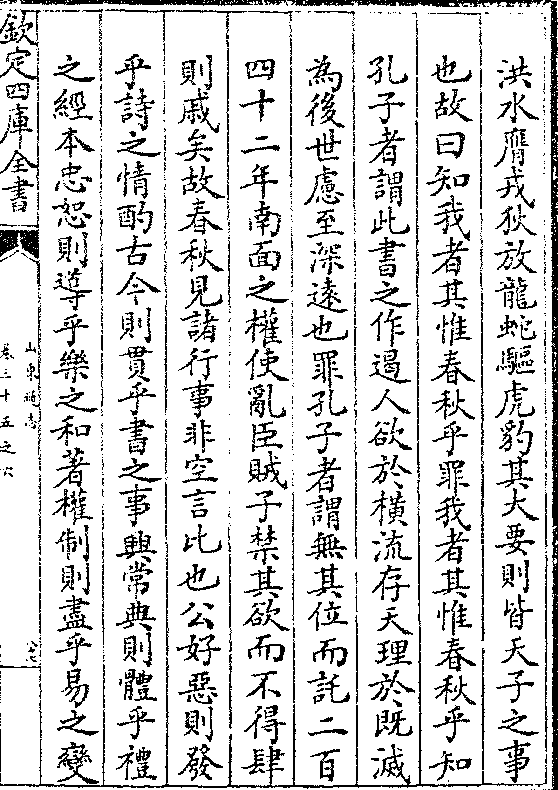 洪水膺戎狄放龍蛇驅虎豹其大要則皆天子之事
也故曰知我者其惟春秋乎罪我者其惟春秋乎知
孔子者謂此書之作遏人欲於橫流存天理於既滅
為後世慮至深遠也罪孔子者謂無其位而託二百
四十二年南面之權使亂臣賊子禁其欲而不得肆
則戚矣故春秋見諸行事非空言比也公好惡則發
乎詩之情酌古今則貫乎書之事興常典則體乎禮
之經本忠恕則導乎樂之和著權制則盡乎易之變
欽定四庫全書
山東通志
卷三十五之六